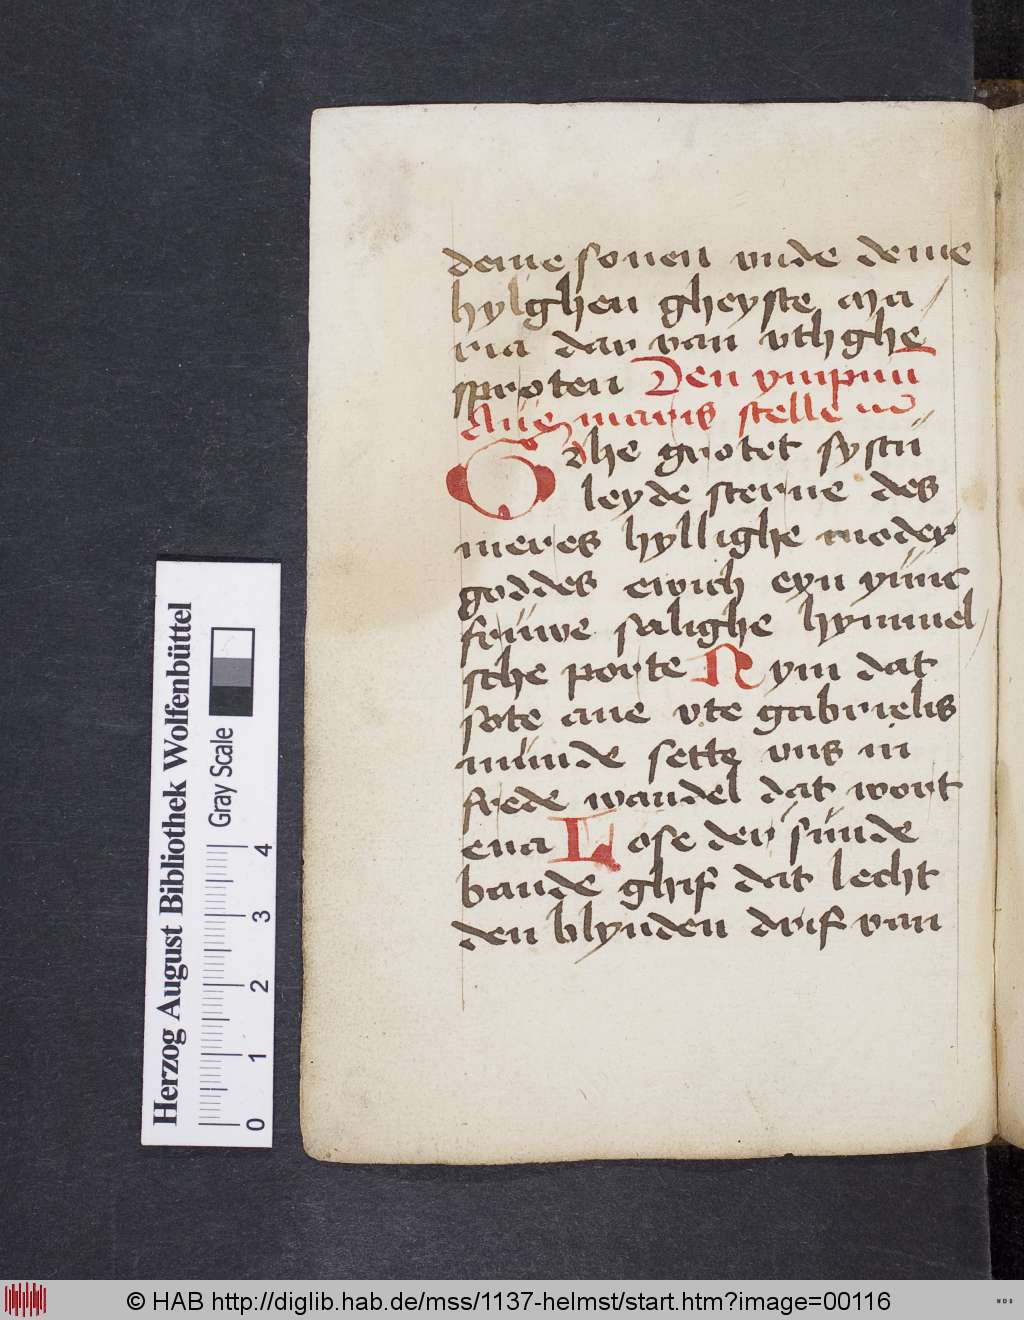 deme sonen vnde deme
hylghen gheyste Ma/
ria dar van vthghe
sproten Den ympnū
Aue maris stelle
Ghe grotet systū
leyde sterne des
meres hyllighe moder
goddes ewich eyn yūnc
frūwe salighe hymmel/
sche porte Nym dat
sote aue vte gabrielis
mūnde sette vns in
frede wandel dat wort
eua Lose der sūnde
bande ghif dat lecht
den blynden drif van
Herzog August Bibliothek Wolfenbüttel
Gray Scale
0 1 2 3 4
© HAB http://diglib.hab.de/mss/1137-helmst/start.htm?image=00116